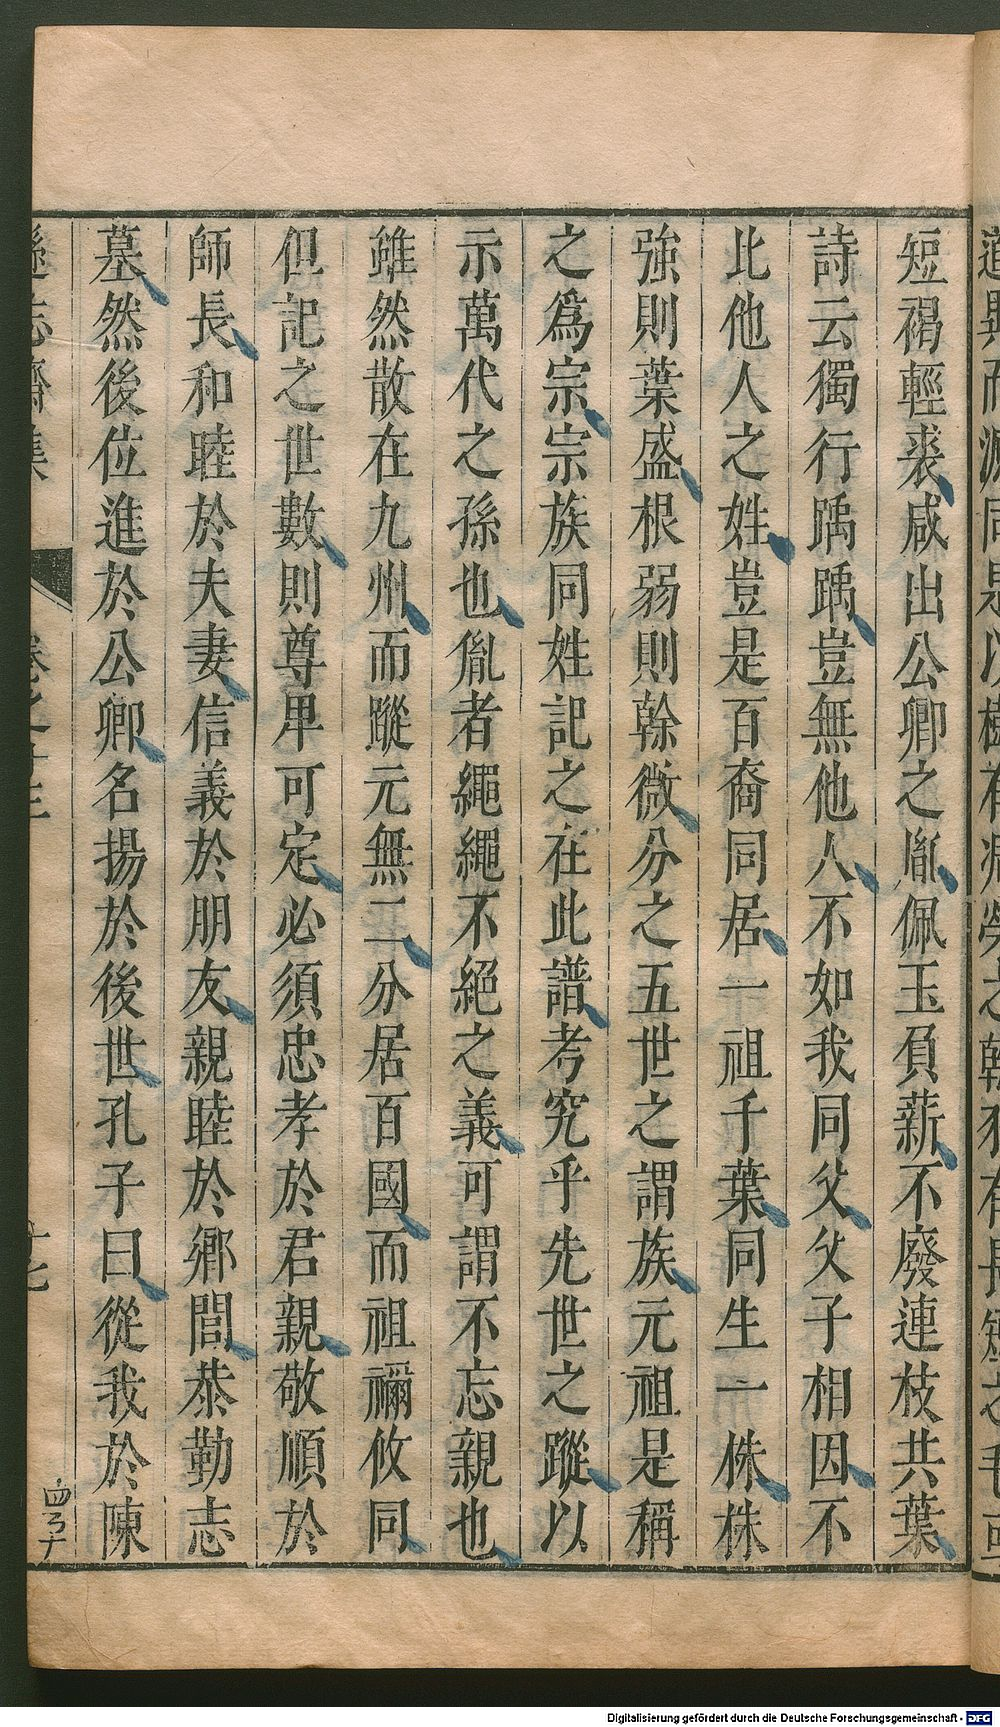 短褐輕裘咸出公卿之胤佩玉負薪不廢連枝共葉
詩云獨行踽踽豈無他人不如我同父父子相因不
比他人之姓豈是百裔同居一祖千葉同生一株株
強則葉盛根弱則幹微分之五世之謂族元祖是稱
之爲宗宗族同姓記之在此譜考究乎先世之蹤以
示萬代之孫也胤者繩繩不絕之義可謂不忘親也
雖然散在九州而蹤元無二分居百國而祖禰攸同
但記之世數則尊卑可定必須忠孝於君親敬順於
師長和睦於夫妻信義於朋友親睦於鄉閭恭勤志
墓然後位進於公卿名揚於後世孔子曰從我於陳
遜志齋集 卷之十三 十七
Digitalisierung gefördert durch die Deutsche Forschungsgemeinschaft - DFG